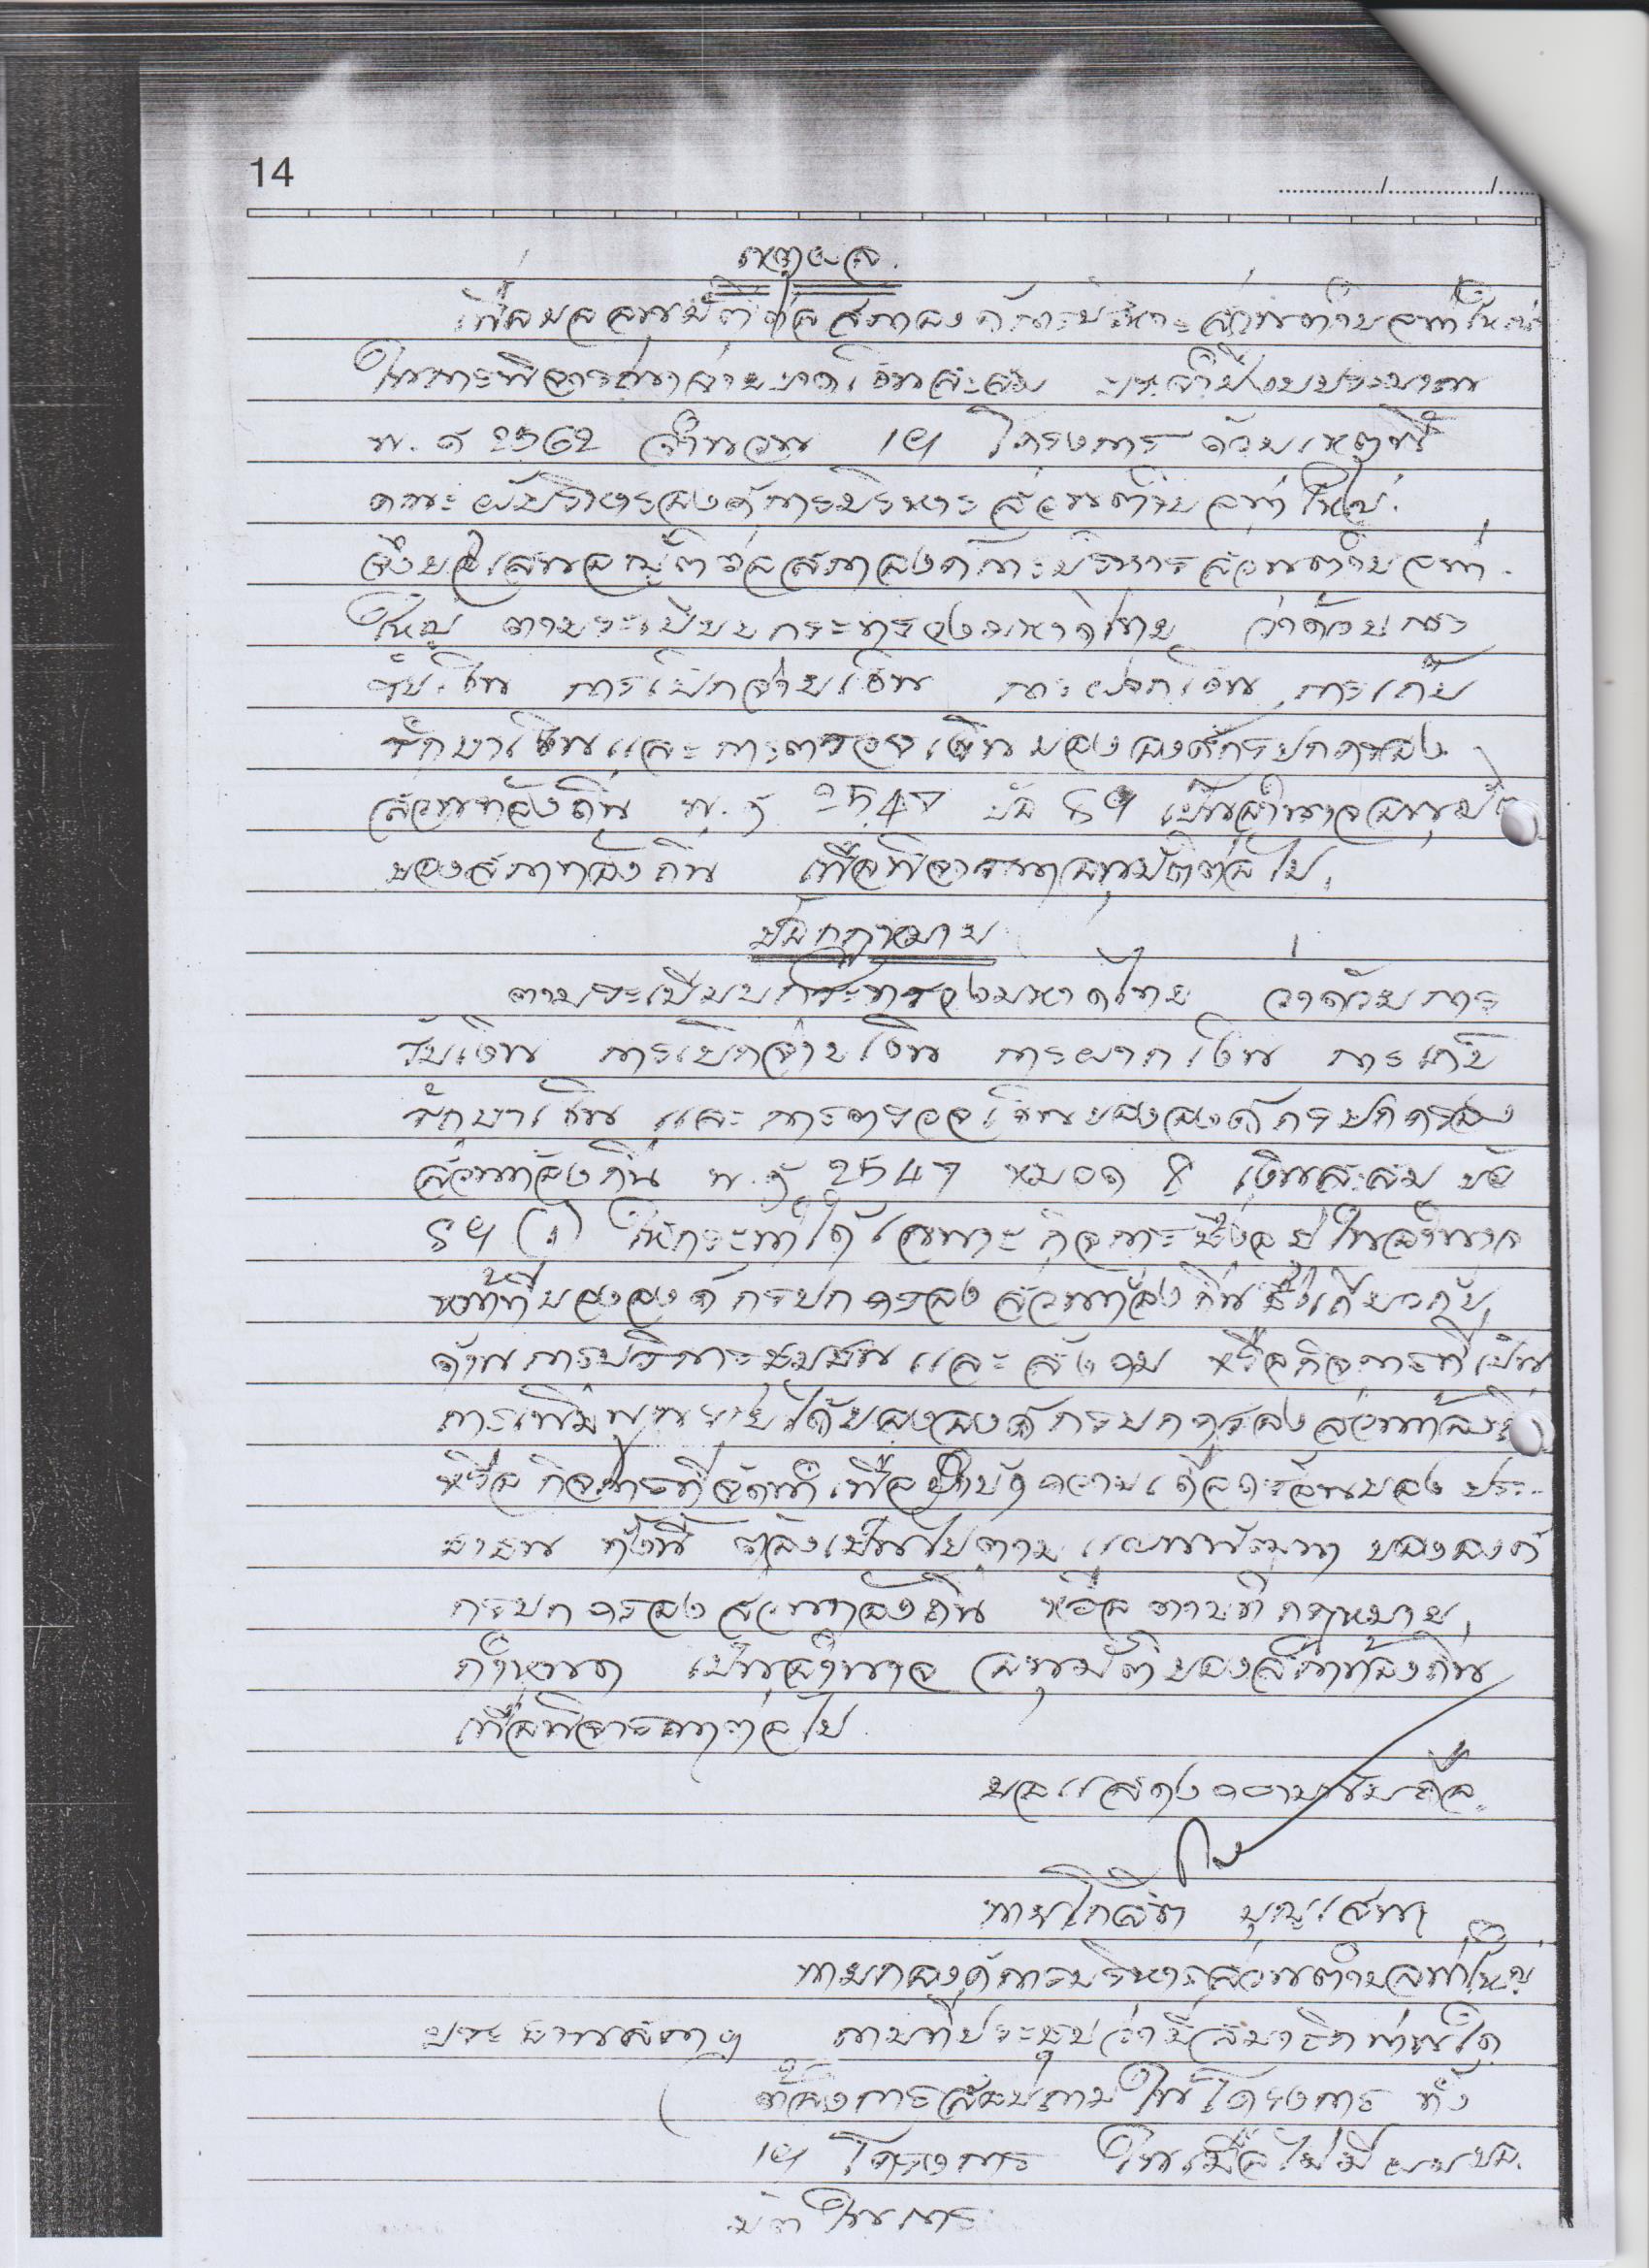 14
เหตุผล
เพื่อขออนุมัติต่อสภาองค์การบริหารส่วนตำบลท่าใหญ่
ในการพิจารณาจ่ายขาดเงินสะสม ประจำปีงบประมาณ
พ.ศ 2562 จำนวน 14 โครงการ ด้วยเหตุนี้
คณะผู้บริหารองค์การบริหารส่วนตำบลท่าใหญ่
จึงขอเสนอญัตติต่อสภาองค์การบริหารส่วนตำบลท่า
ใหญ่ ตามระเบียบกระทรวงมหาดไทย ว่าด้วยการ
รับเงิน การเบิกจ่ายเงิน การฝากเงิน การเก็บ
รักษาเงินและการตรวจเงินขององค์กรปกครอง
ส่วนท้องถิ่น พ.ศ 2547 ข้อ 89 เป็นอำนาจอนุมัติ
ของสภาท้องถิ่น เพื่อพิจารณาอนุมัติต่อไป
ข้อกฎหมาย
ตามระเบียบกระทรวงมหาดไทย ว่าด้วยการ
รับเงิน การเบิกจ่ายเงิน การฝากเงิน การเก็บ
รักษาเงิน และการตรวจเงินขององค์กรปกครอง
ส่วนท้องถิ่น พ.ศ 2547 หมวด 8 เงินสะสม ข้อ
89 (1) ให้กระทำได้เฉพาะกิจการซึ่งอยู่ในอำนาจ
หน้าที่ขององค์กรปกครองส่วนท้องถิ่นซึ่งเกี่ยวกับ
ด้านการบริการชุมชนและสังคม หรือกิจการที่เป็น
การเพิ่มพูนรายได้ขององค์กรปกครองส่วนท้องถิ่น
หรือกิจการที่จัดทำเพื่อบำบัดความเดือดร้อนของประ-
ชาชน ทั้งนี้ ต้องเป็นไปตามแผนพัฒนาขององค์
กรปกครองส่วนท้องถิ่น หรือตามที่กฎหมาย
กำหนด เป็นอำนาจอนุมัติของสภาท้องถิ่น
เพื่อพิจารณาต่อไป
ขอแสดงความนับถือ
นายโกสิต บุญเสนา
นายกองค์การบริหารส่วนตำบลท่าใหญ่
ประธานสภาฯ ถามที่ประชุมว่ามีสมาชิกท่านใด
ต้องการสอบถามในโครงการ ทั้ง
14 โครงการ ในเมื่อไม่มีผมขอ
มติในการ